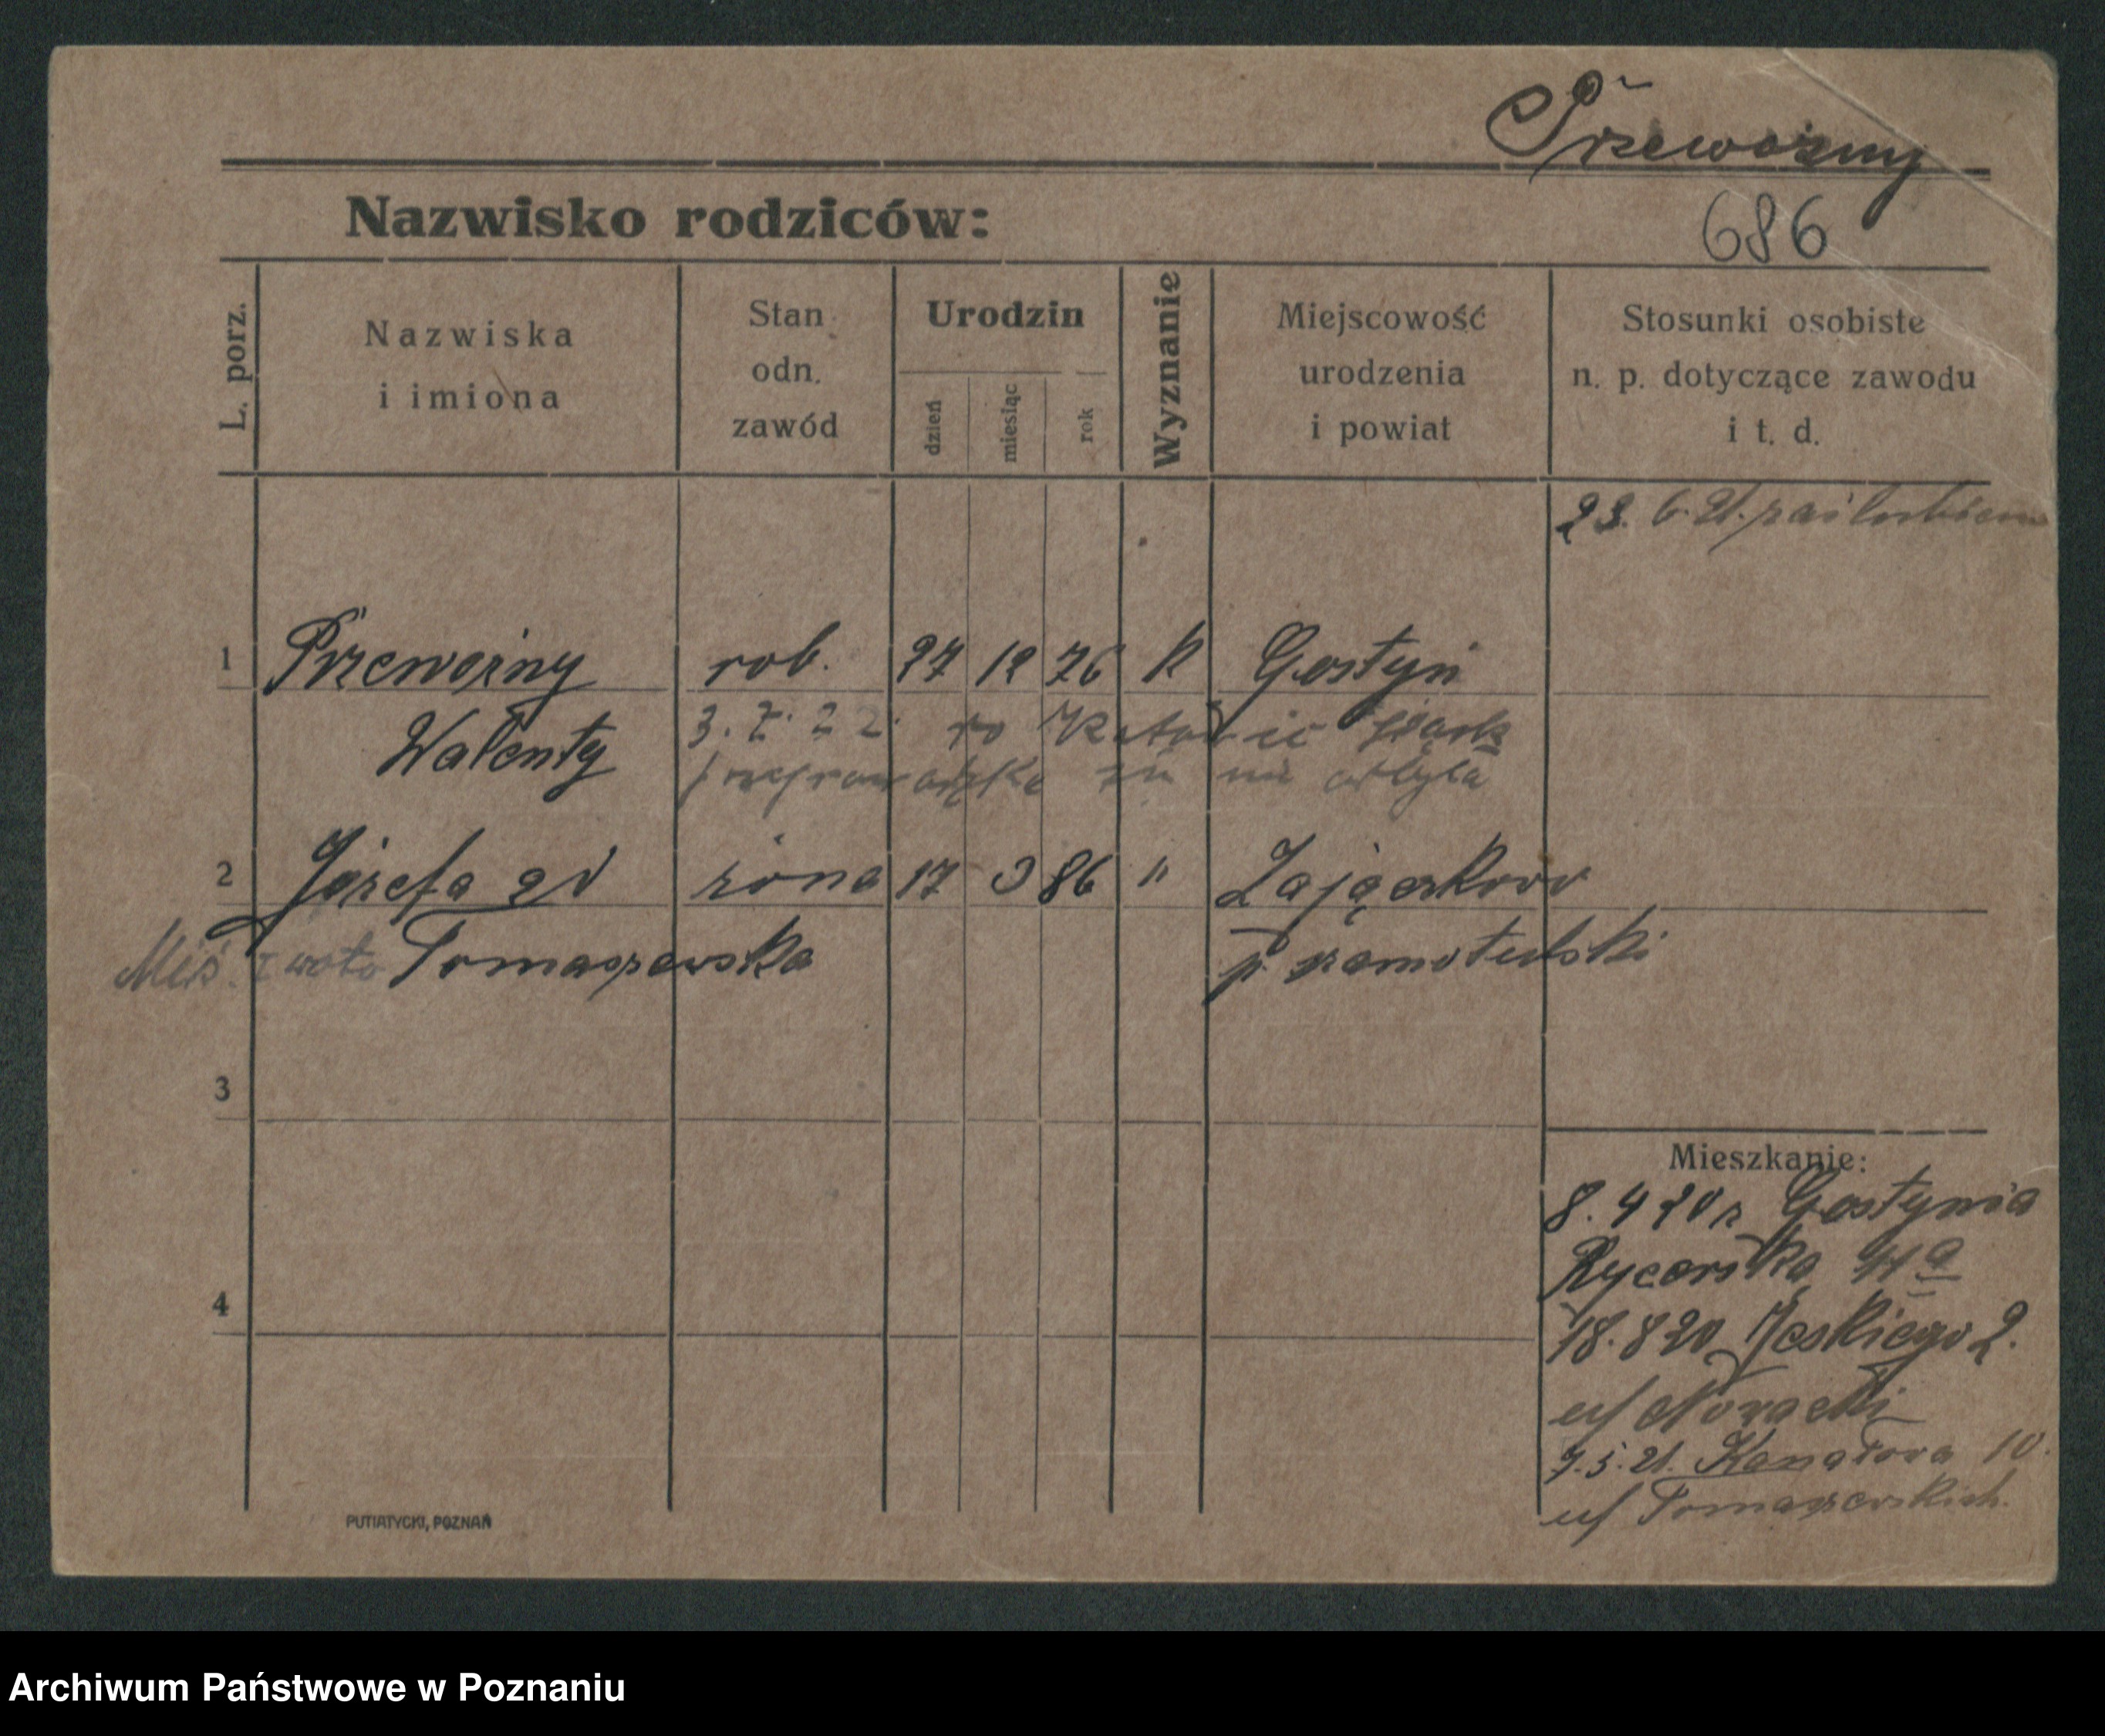 Przewoźny
Nazwisko rodziców:
686
L. porz.
Nazwiska
i imiona
Stan
odn.
zawód
Urodzin
dzień
miesiąc
rok
Wyznanie
Miejscowość
urodzenia
i powiat
Stosunki osobiste
n. p. dotyczące zawodu
i t. d.
23. 6. 21.
1 Przewoźny rob. 27 12 76 K Gostyń
Walenty 3. 7. 22. do Katowic
przeprowadzka się nie odbyła
2 Józefa 2 v żona 17 3 86 " Zajączkowo
I voto Tomaszewska p. szamotulski
3
4
Mieszkanie:
8. 4 20 z Gostynia
Rycerska
18. 8 20 2.
u/
7. 5. 21. Kanałowa 10.
u/ Tomaszewskich.
PUTIATYCKI, POZNAŃ
Archiwum Państwowe w Poznaniu